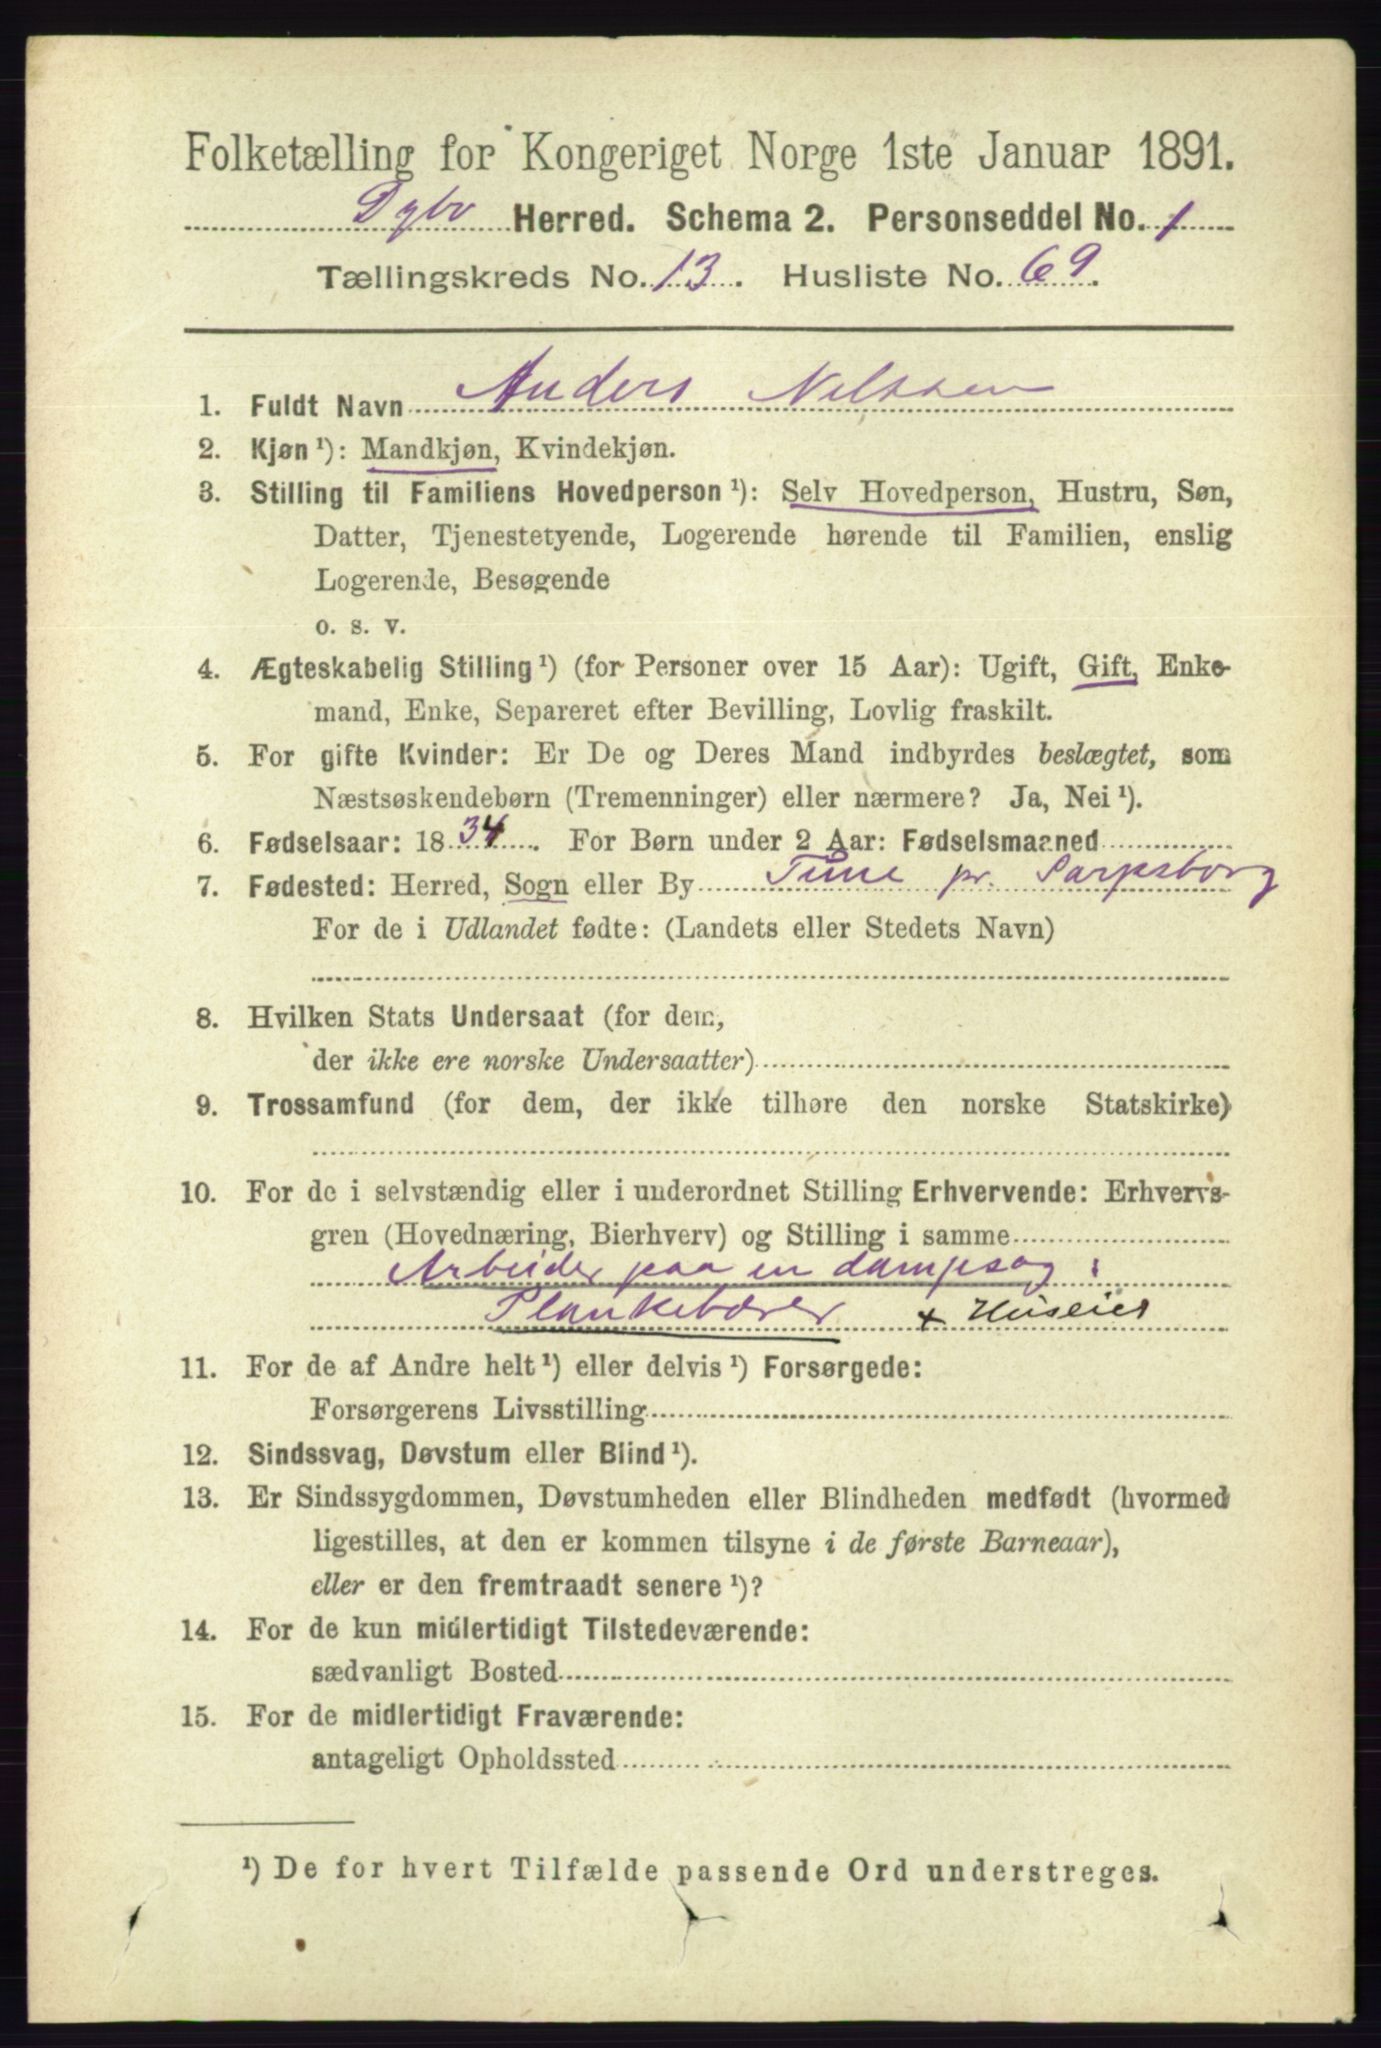 Folketælling for Kongeriget Norge 1ste Januar 1891.
Dybo Herred. Schema 2. Personseddel No. 1
Tællingskreds No. 13. Husliste No. 69.
1. Fuldt Navn Anders Nilssen
2. Kjøn ¹): Mandkjøn, Kvindekjøn.
3. Stilling til Familiens Hovedperson ¹): Selv Hovedperson, Hustru, Søn,
Datter, Tjenestetyende, Logerende hørende til Familien, enslig
Logerende, Besøgende
o. s. v.
4. Ægteskabelig Stilling ¹) (for Personer over 15 Aar): Ugift, Gift, Enke-
mand, Enke, Separeret efter Bevilling, Lovlig fraskilt.
5. For gifte Kvinder: Er De og Deres Mand indbyrdes beslægtet, som
Næstsøskendebørn (Tremenninger) eller nærmere? Ja, Nei ¹).
6. Fødselsaar: 1834. For Børn under 2 Aar: Fødselsmaaned
7. Fødested: Herred, Sogn eller By Tune pr. Sarpsborg
For de i Udlandet fødte: (Landets eller Stedets Navn)
8. Hvilken Stats Undersaat (for dem,
der ikke ere norske Undersaatter)
9. Trossamfund (for dem, der ikke tilhøre den norske Statskirke)
10. For de i selvstændig eller i underordnet Stilling Erhvervende: Erhvervs-
gren (Hovednæring, Bierhverv) og Stilling i samme
Arbeider paa en dampsag:
Plankebærer + Huseier
11. For de af Andre helt ¹) eller delvis ¹) Forsørgede:
Forsørgerens Livsstilling
12. Sindssvag, Døvstum eller Blind ¹).
13. Er Sindssygdommen, Døvstumheden eller Blindheden medfødt (hvormed
ligestilles, at den er kommen tilsyne i de første Barneaar),
eller er den fremtraadt senere ¹)?
14. For de kun midlertidigt Tilstedeværende:
sædvanligt Bosted
15. For de midlertidigt Fraværende:
antageligt Opholdssted
¹) De for hvert Tilfælde passende Ord understreges.